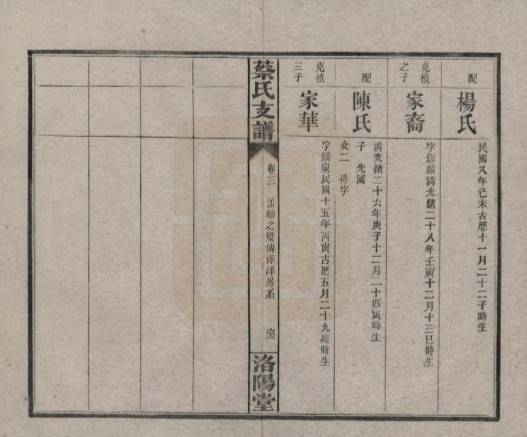 配
楊氏
民國八年己未古曆十一月二十二子時生
克楨
之子
家裔
清光緒二十八年壬寅十二月十三巳時生
配
陳氏
清光緒二十六年庚子十二月二十四寅時生
子 先國
女二 待字
克楨
三子
家華
民國十五年丙寅古曆五月二十九
時生
蔡氏支譜
卷三
洛陽堂